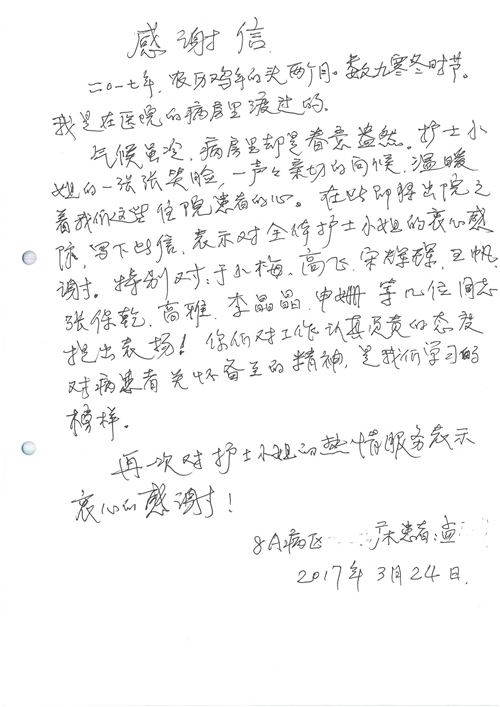 感谢信
二〇一七年，农历鸡年的头两个月。数九寒冬时节。
我是在医院的病房里渡过的。
气候虽冷，病房里却是春意盎然。护士小
姐的一张张笑脸，一声々亲切的问候，温暖
着我们这些住院患者的心。在此即将出院之
际，写下此信，表示对全体护士小姐的衷心感
谢。特别对：于小梅、高飞、宋辉辉、王帆、
张保乾、高雅、李晶晶、申姗等几位同志
提出表扬！你们对工作认真负责的态度
对病患者关怀备至的精神，是我们学习的
榜样。
再一次对护士小姐的热情服务表示
衷心的感谢！
8A病区 床患者：孟
2017年3月24日.